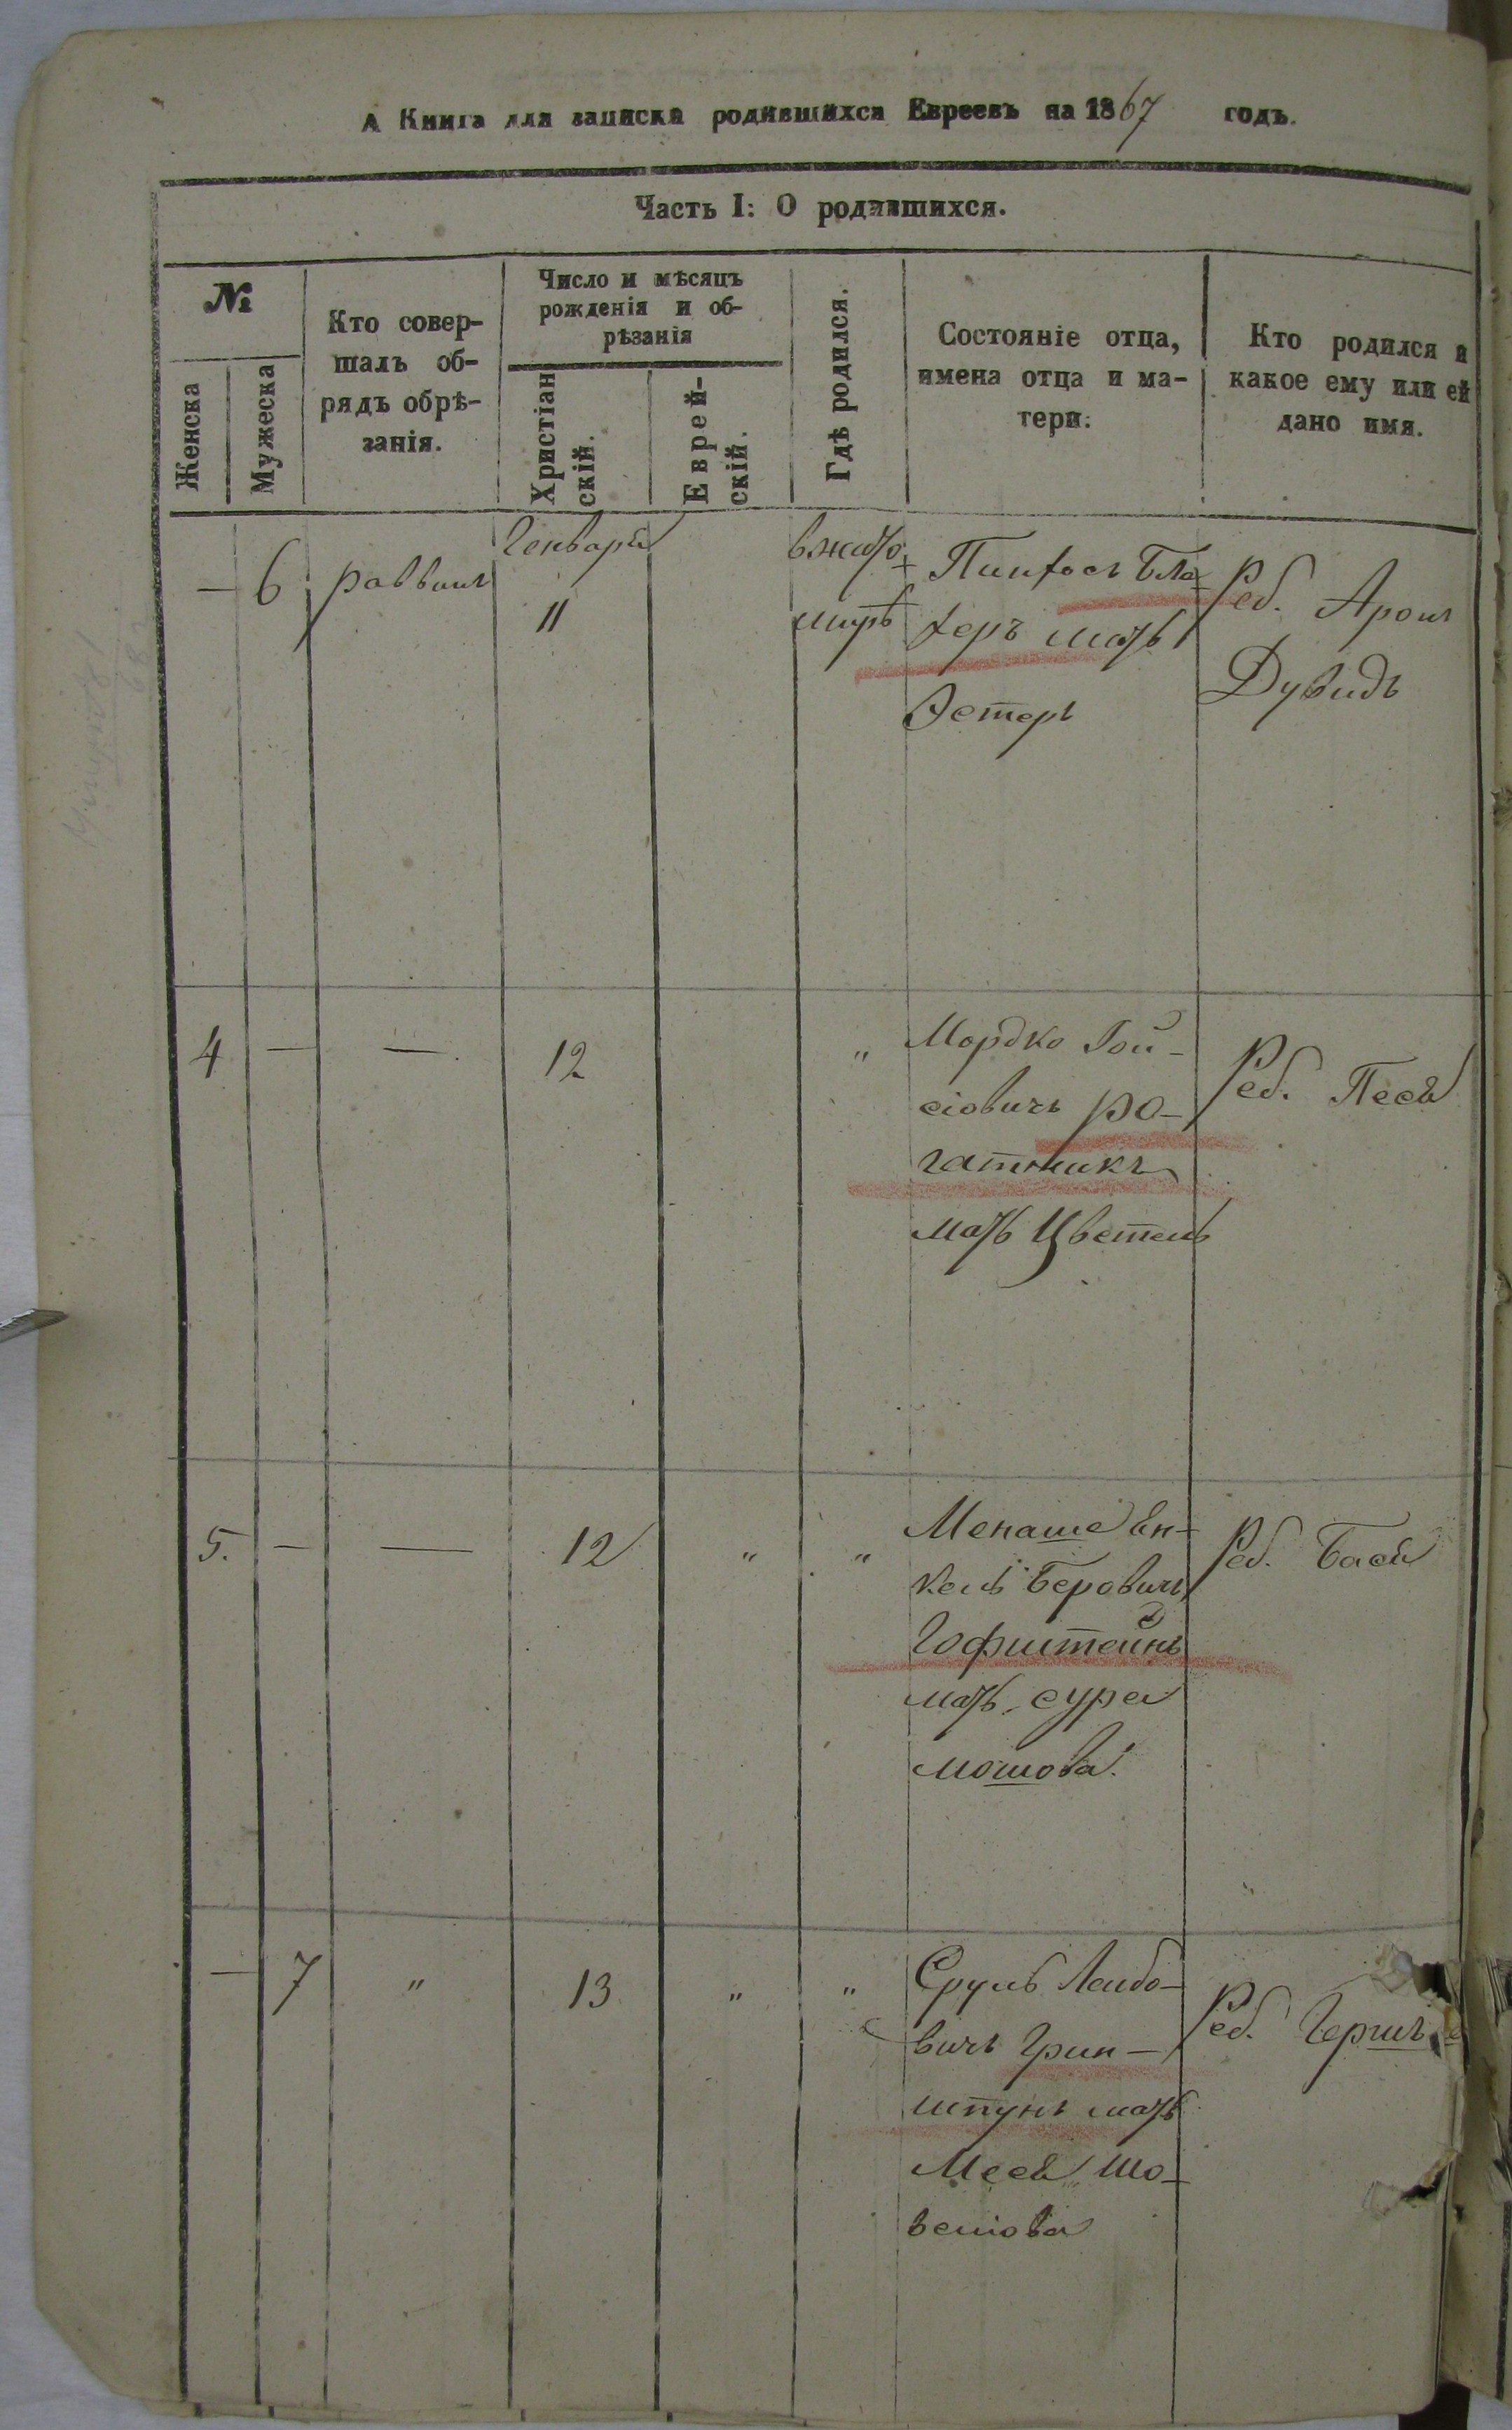 А Книга для записки родившихся Евреевъ на 1867 годъ.
Часть I: О родившихся.
№
Женска
Мужеска
Кто совер-
шалъ об-
рядъ обрѣ-
занія.
Число и мѣсяцъ
рожденія и об-
рѣзанія
Христіан
скій.
Еврей-
скій.
Гдѣ родился.
Состояніе отца,
имена отца и ма-
тери.
Кто родился и
какое ему или ей
дано имя.
— 6 раввинъ
Генваря
11
вжито
мирѣ
Пинхосъ Бла
херъ мать
Эстеръ
Реб. Аронъ
Дувидъ
4 — — 12 "
Мордко Іой-
сіовичъ Ро-
гатникъ
мать Цветель
Реб. Песя
5. — — 12 " "
Менаше Ян-
кель Беровичъ
Гофштейнъ
мать сура
мошова.
Реб. Бася
— 7 " 13 " "
Сруль Лейбо-
вичъ Грин-
шпунъ мать
Меся
Реб. Гершъ